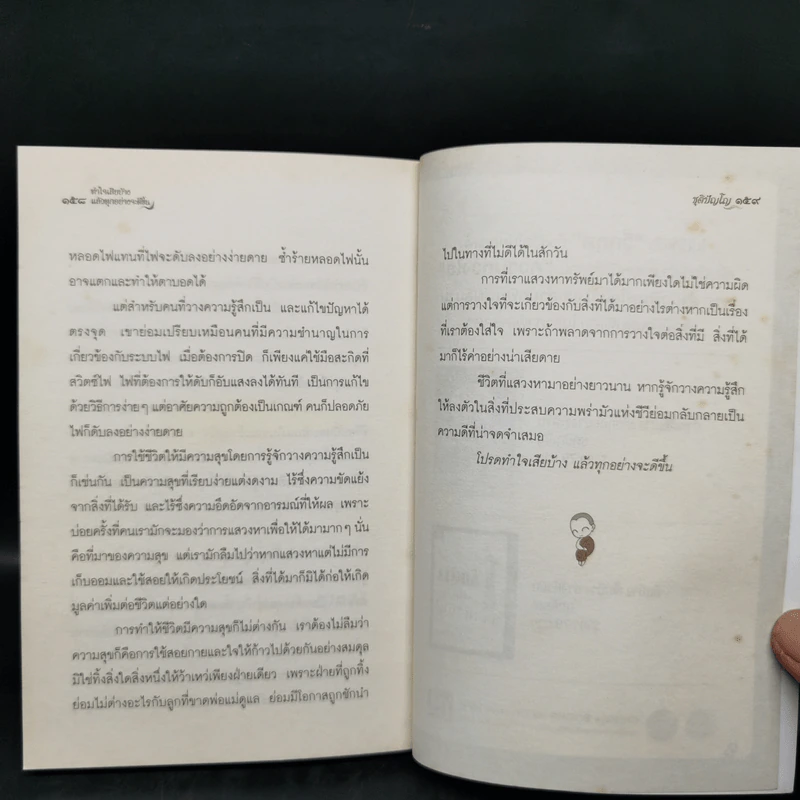 ทำใจเสียบ้าง
๑๕๘ แล้วทุกอย่างจะดีขึ้น
หลอดไฟแทนที่ไฟจะดับลงอย่างง่ายดาย ซ้ำร้ายหลอดไฟนั้น
อาจแตกและทำให้ตาบอดได้
แต่สำหรับคนที่วางความรู้สึกเป็น และแก้ไขปัญหาได้
ตรงจุด เขาย่อมเปรียบเหมือนคนที่มีความชำนาญในการ
เกี่ยวข้องกับระบบไฟ เมื่อต้องการปิด ก็เพียงแค่ใช้มือสะกิดที่
สวิตซ์ไฟ ไฟที่ต้องการให้ดับก็อับแสงลงได้ทันที เป็นการแก้ไข
ด้วยวิธีการง่ายๆ แต่อาศัยความถูกต้องเป็นเกณฑ์ คนก็ปลอดภัย
ไฟก็ดับลงอย่างง่ายดาย
การใช้ชีวิตให้มีความสุขโดยการรู้จักวางความรู้สึกเป็น
ก็เช่นกัน เป็นความสุขที่เรียบง่ายแต่งดงาม ไร้ซึ่งความขัดแย้ง
จากสิ่งที่ได้รับ และไร้ซึ่งความอึดอัดจากอารมณ์ที่ให้ผล เพราะ
บ่อยครั้งที่คนเรามักจะมองว่าการแสวงหาเพื่อให้ได้มามากๆ นั่น
คือที่มาของความสุข แต่เรามักลืมไปว่าหากแสวงหาแต่ไม่มีการ
เก็บออมและใช้สอยให้เกิดประโยชน์ สิ่งที่ได้มาก็มิได้ก่อให้เกิด
มูลค่าเพิ่มต่อชีวิตแต่อย่างใด
การทำให้ชีวิตมีความสุขก็ไม่ต่างกัน เราต้องไม่ลืมว่า
ความสุขก็คือการใช้สอยกายและใจให้ก้าวไปด้วยกันอย่างสมดุล
มิใช่ทิ้งสิ่งใดสิ่งหนึ่งให้ว้าเหว่เพียงฝ่ายเดียว เพราะฝ่ายที่ถูกทิ้ง
ย่อมไม่ต่างอะไรกับลูกที่ขาดพ่อแม่ดูแล ย่อมมีโอกาสถูกชักนำ
ชุติปัญโญ ๑๕๙
ไปในทางที่ไม่ดีได้ในสักวัน
การที่เราแสวงหาทรัพย์มาได้มากเพียงใดไม่ใช่ความผิด
แต่การวางใจที่จะเกี่ยวข้องกับสิ่งที่ได้มาอย่างไรต่างหากเป็นเรื่อง
ที่เราต้องใส่ใจ เพราะถ้าพลาดจากการวางใจต่อสิ่งที่มี สิ่งที่ได้
มาก็ไร้ค่าอย่างน่าเสียดาย
ชีวิตที่แสวงหามาอย่างยาวนาน หากรู้จักวางความรู้สึก
ให้ลงตัวในสิ่งที่ประสบความพร่ามัวแห่งชีวีย่อมกลับกลายเป็น
ความดีที่น่าจดจำเสมอ
โปรดทำใจเสียบ้าง แล้วทุกอย่างจะดีขึ้น